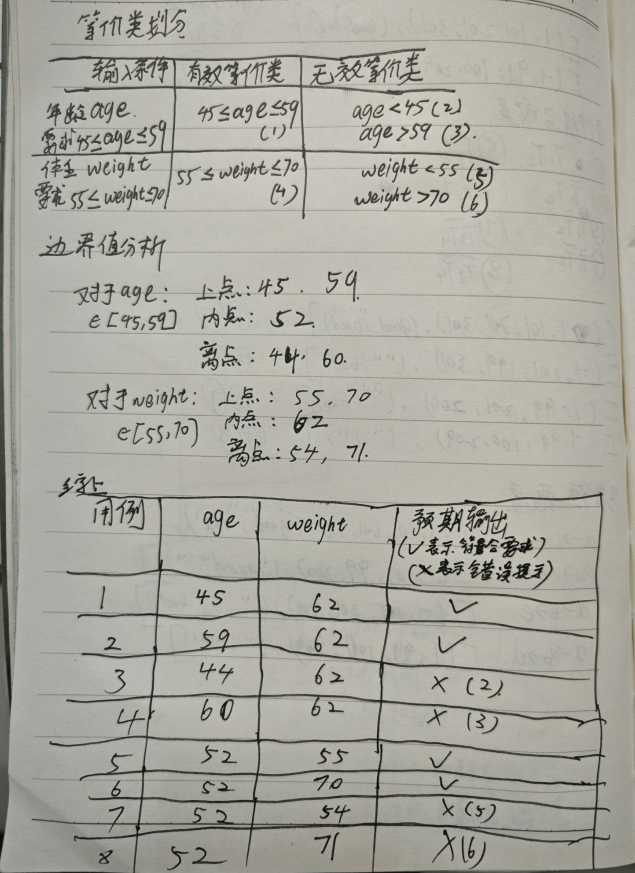 等价类划分
输入条件 有效等价类 无效等价类
年龄 age. 45≤age≤59 age<45(2)
要求45≤age≤59 (1) age>59 (3).
体重 weight 55≤weight≤70 weight<55(5)
要求 55≤weight≤70 (4) weight>70 (6)
边界值分析
对于age: 上点:45. 59.
∈[45,59] 内点: 52.
离点: 44, 60.
对于weight: 上点: 55, 70
∈[55,70] 内点: 62
离点:54, 71.
综上
用例 age weight 预期输出
(√表示符合要求)
(×表示错误提示)
1 45 62 √
2 59 62 √
3 44 62 × (2)
4 60 62 × (3)
5 52 55 √
6 52 70 √
7 52 54 ×(5)
8 52 71 ×(6)